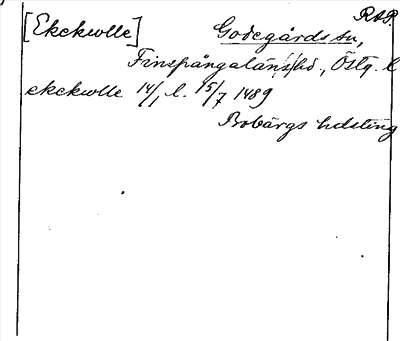 RAP.
[Ekekulle] Godegårds sn,
Finspångaläns hd., Östg. l
ekekulle 14/1 l. 15/7 1489
Bobärgs hdsting